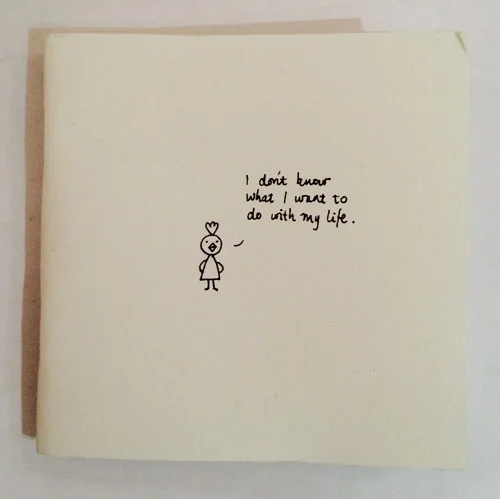 I don't know
what I want to
do with my life.